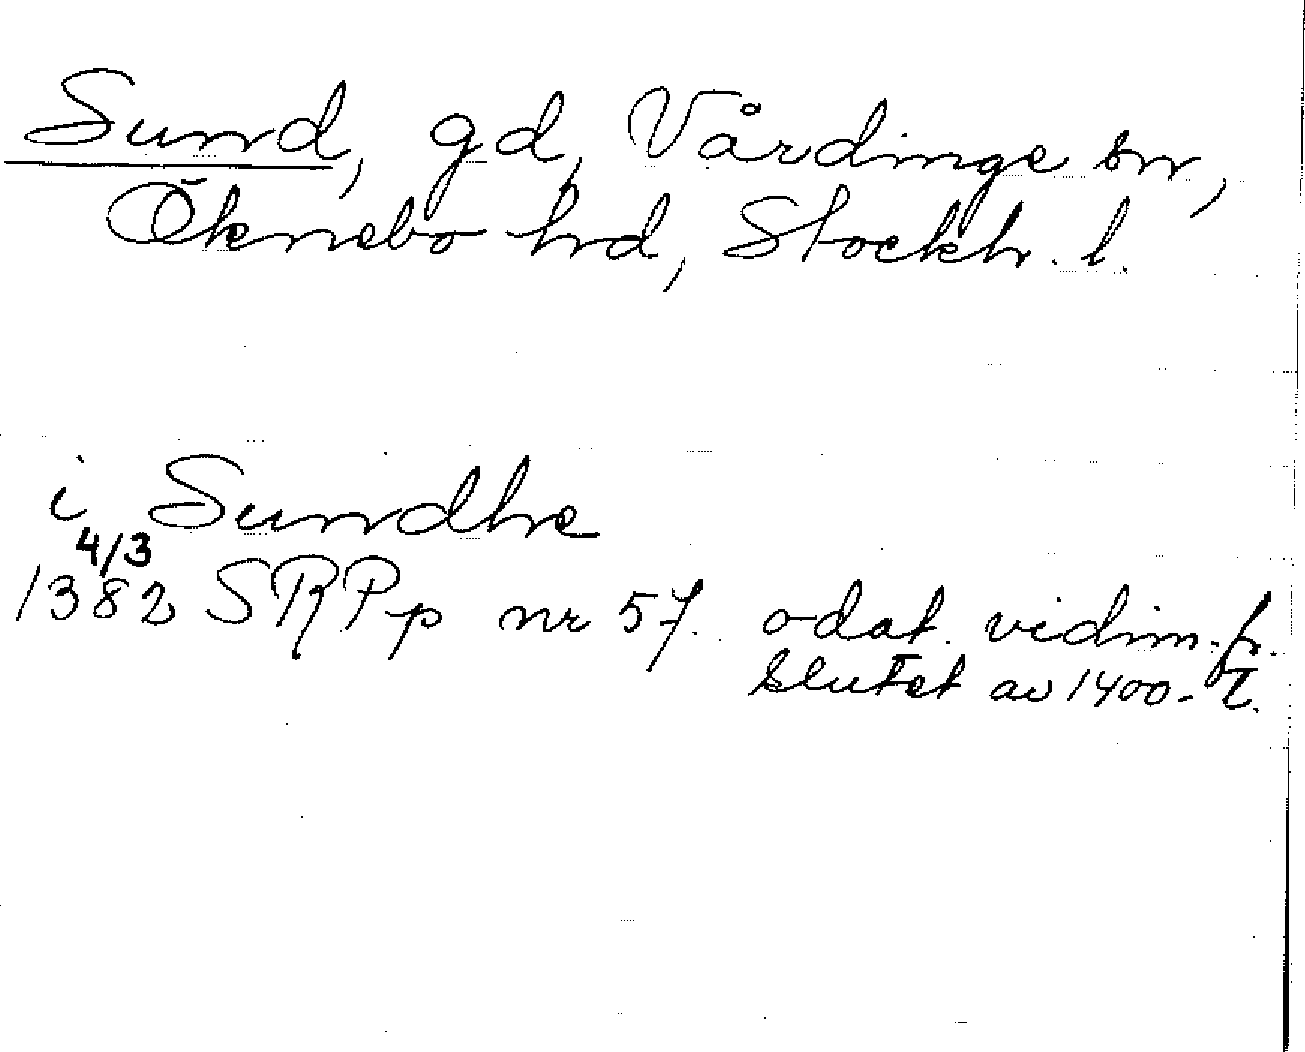 Sund, gd, Vårdinge sn,
Öknebo hd, Stockh. l.
i Sundhe
4/3
1382 SRPp nr 57. odat. vidim. fr.
slutet av 1400-t.